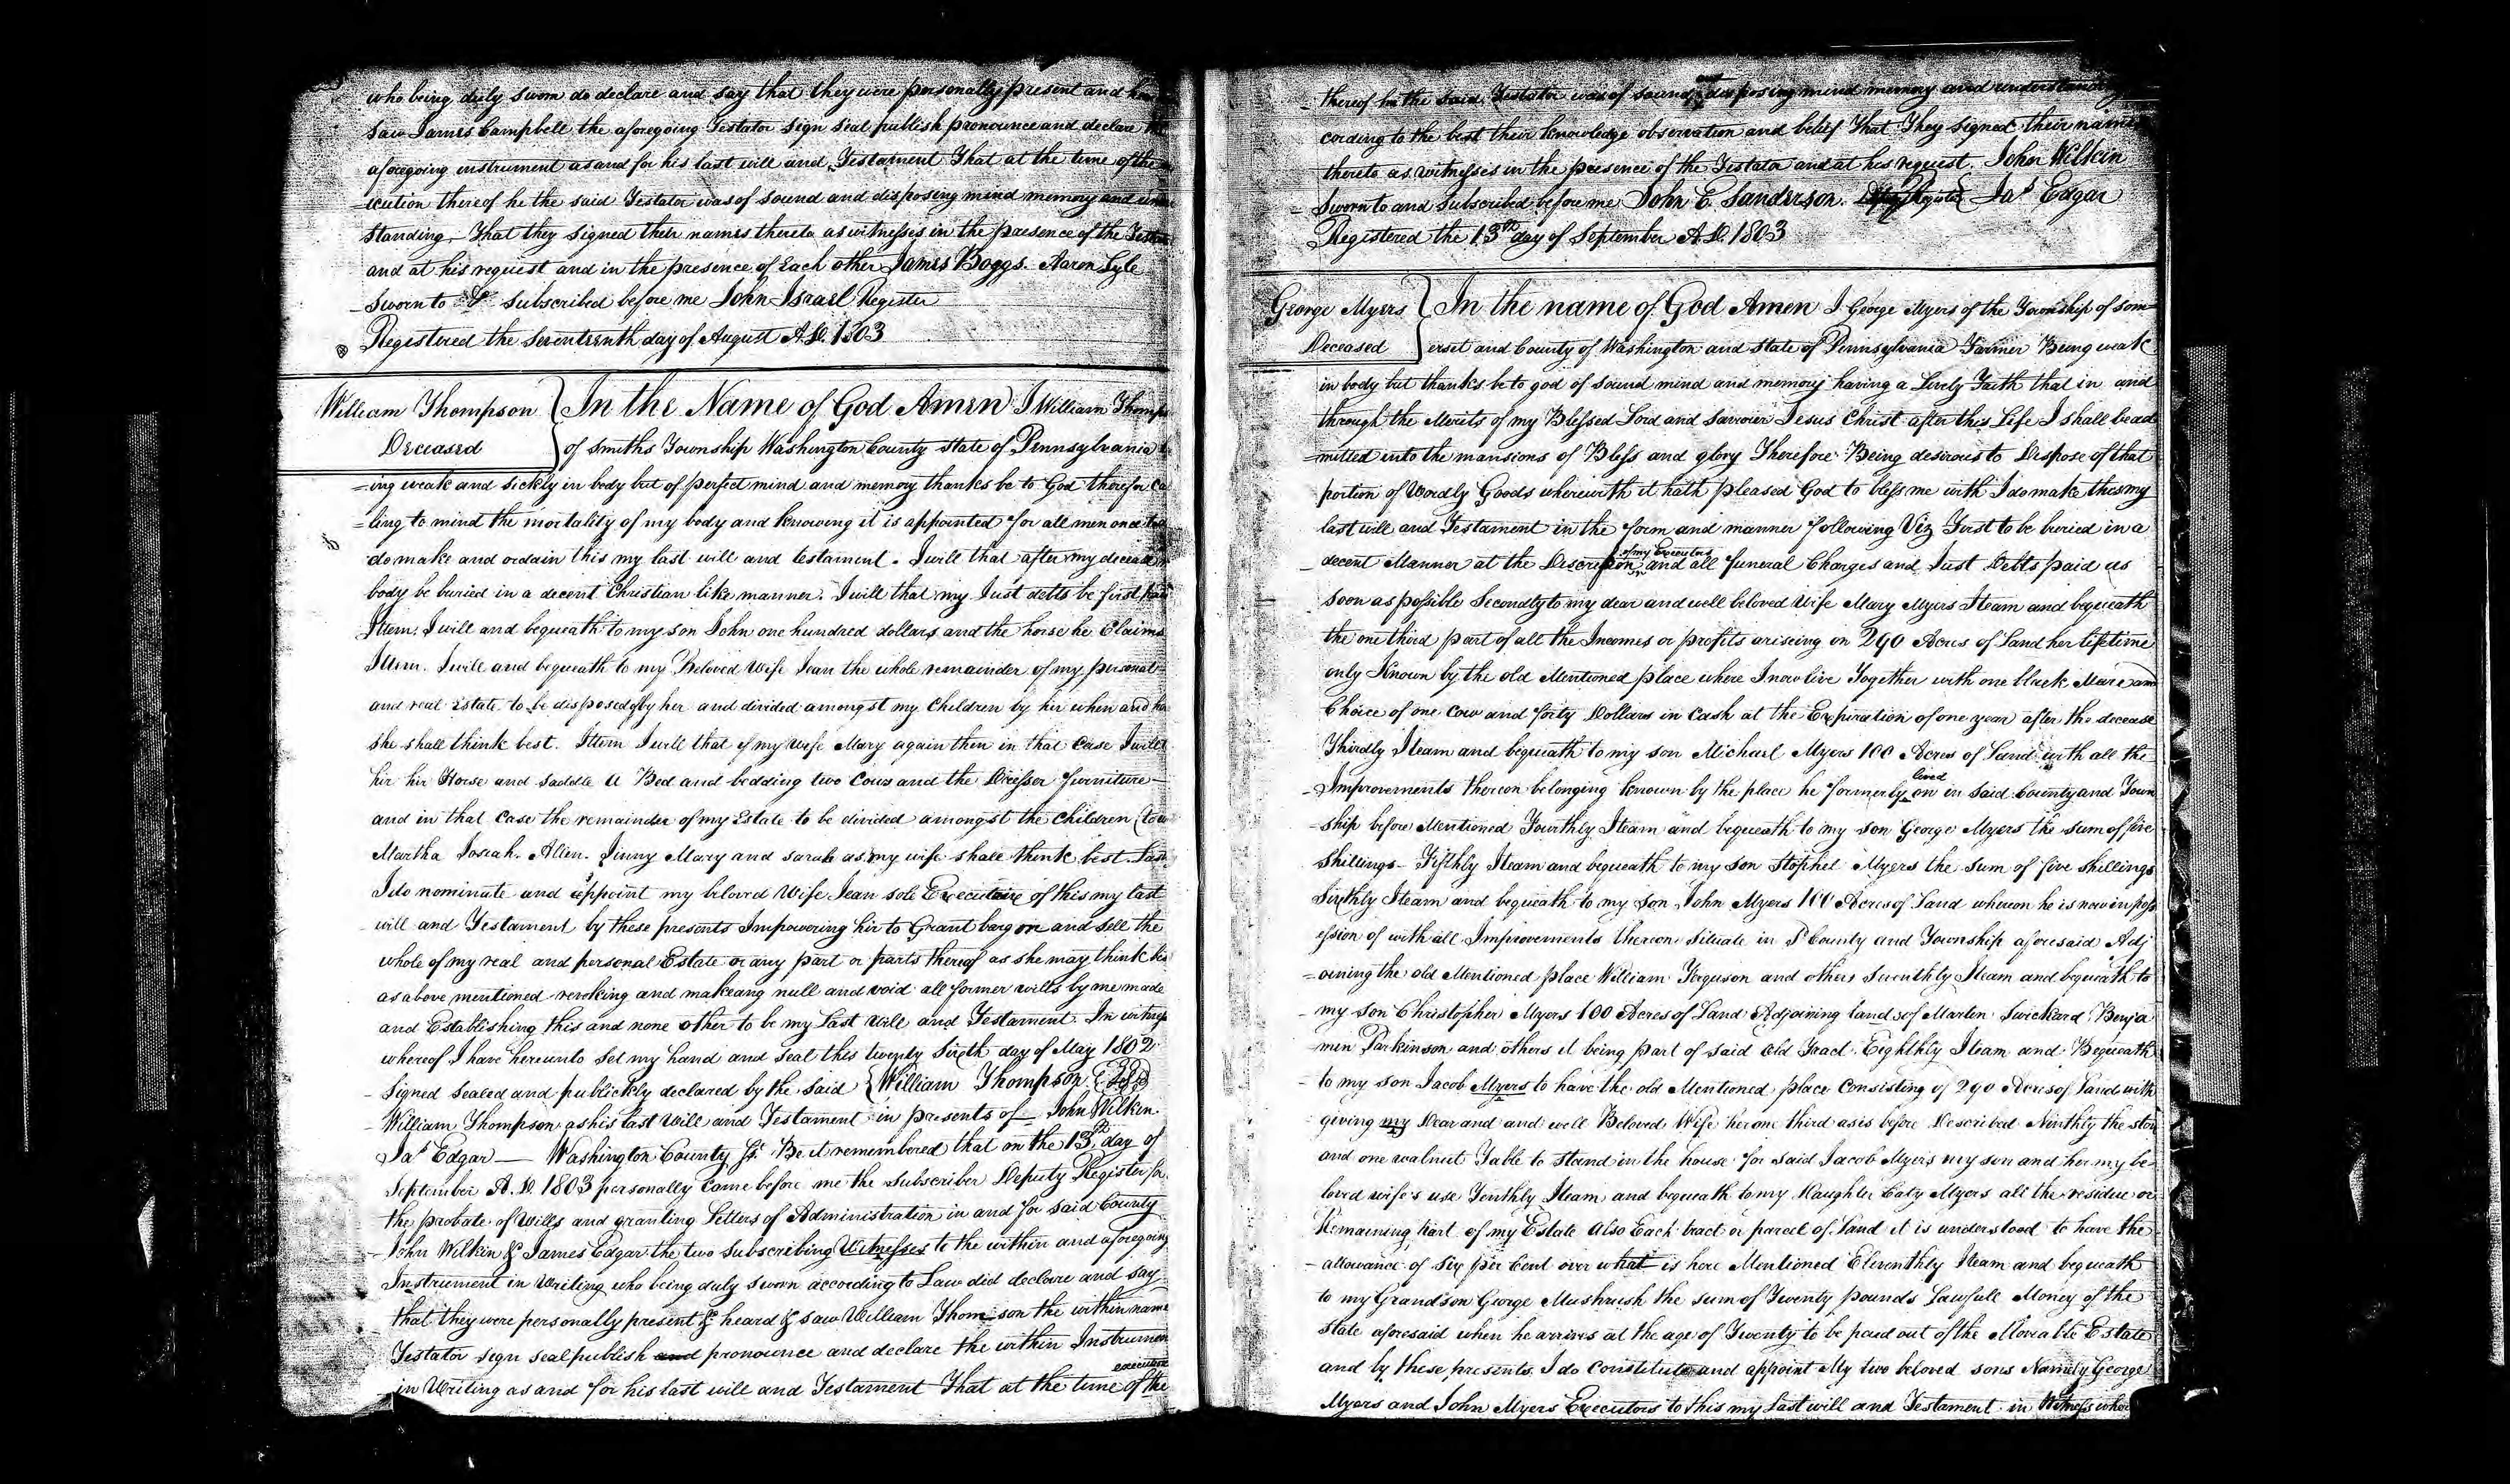 who being duly sworn do declare and say that they were personally present and
saw James Campbell the aforegoing Testator sign seal publish pronounce and declare the
aforegoing instrument as and for his last will and Testament That at the time of the
=cution thereof he the said Testator was of sound and disposing mind memory and
standing. That they signed their names thereto as witnesses in the presence of the
and at his request and in the presence of Each other James Boggs. Aaron Lyle
Sworn to & subscribed before me John Israel Register
Registered the Seventeenth day of August A.D. 1803
William Thompson Deceased
In the Name of God Amen I William
of Smiths Township Washington County State of Pennsylvania
=ing weak and sickly in body but of perfect mind and memory thanks be to God therefor
=ling to mind the mortality of my body and knowing it is appointed for all men once
do make and ordain this my last will and testament. I will that after my decease
body be buried in a decent Christian like manner. I will that my Just debts be first
Item. I will and bequeath to my son John one hundred dollars and the horse he Claims
Item. I will and bequeath to my Beloved Wife Jean the whole remainder of my personal
and real Estate to be disposed of by her and divided amongst my Children by her when and
she shall think best. Item I will that if my Wife Mary again then in that Case I will
hir hir Horse and saddle a Bed and bedding two Cows and the Dresser furniture
and in that Case the remainder of my Estate to be divided amongst the Children
Martha Josiah. Allen. Jinny Mary and Sarah as my wife shall think best.
I do nominate and appoint my beloved Wife Jean sole of this my last
will and Testament by these presents Impowering hir to Grant bargon and sell the
whole of my real and personal Estate or any part or parts thereof as she may think
as above mentioned revoking and makeang null and void all former wills by me made
and Establishing this and none other to be my Last Will and Testament. In
whereof I have hereunto set my hand and seal this twenty sixth day of May 1802
Signed sealed and publickly declared by the said William Thompson
William Thompson as his last Will and Testament in presents of John Wilkin.
Jas Edgar — Washington County Ss. Be it remembered that on the 13th day of
September A.D. 1803 personally came before me the subscriber Deputy Register for
the probate of Wills and granting Letters of Administration in and for said County
John Wilkin & James Edgar the two subscribing Witnesses to the within and aforegoing
Instrument in Writing who being duly sworn according to Law did declare and say
that they were personally present & heard & saw William Thomson the within name
Testator sign seal publish and pronounce and declare the within Instrumen
in Writing as and for his last will and Testament That at the time of the
thereof he the said Testator was of sound and disposing mind memory and understanding
cording to the best their knowledge observation and belief That They signed their names
thereto as witnesses in the presence of the Testator and at his request. John Wilkin
Sworn to and subscribed before me John C. Sanderson. Jas Edgar
Registered the 13th day of September A.D. 1803
George Myers Deceased
In the name of God Amen I George Myers of the Township of Som
erset and County of Washington and State of Pennsylvania Farmer Being weak
in body but thanks be to god of sound mind and memory having a Lively Faith that in and
through the Merits of my Blessed Lord and Saviour Jesus Christ after this Life I shall be ad
=mitted into the mansions of Bless and glory Therefore Being desirous to Dispose of that
portion of Wordly Goods wherewith it hath pleased God to bless me with I do make this my
last will and Testament in the form and manner following Viz First to be buried in a
decent Manner at the Discretion of my Executors and all funeral Charges and Just Debts paid as
soon as possible Secondly to my dear and well beloved Wife Mary Myers Iteam and bequeath
the one third part of all the Incomes or profits ariseing on 290 Acres of Land her lifetime
only Known by the old Mentioned place where I now live Together with one black Mare and
Choice of one Cow and forty Dollars in Cash at the Expiration of one year after the decease
Thirdly Iteam and bequeath to my son Michael Myers 100 Acres of Land with all the
Improvements thereon belonging known by the place he formerly lived on in said County and Town
=ship before Mentioned Fourthly Iteam and bequeath to my son George Myers the sum of five
Shillings - Fifthly Iteam and bequeath to my son Stophel Myers the sum of five shillings
Sixthly Iteam and bequeath to my Son John Myers 100 Acres of Land whereon he is now in poss
ession of with all Improvements thereon Situate in Sd County and Township aforesaid Adj
=oining the old Mentioned place William Ferguson and others Seventhly Iteam and bequeath to
my son Christopher Myers 100 Acres of Land Adjoining lands of Martin Swickard Benja
min Parkinson and others it being part of said Old Tract. Eighthly Iteam and Bequeath
to my son Jacob Myers to have the old Mentioned place Consisting of 290 Acres of Land with
giving my Dear and and well Beloved Wife her one third as is before Described Ninthly the
and one walnut Table to stand in the house for said Jacob Myers my son and her my be
loved wife's use Tenthly Iteam and bequeath to my Daughter Caty Myers all the residue or
Remaining part of my Estate Also Each tract or parcel of Land it is understood to have the
allowance of six per Cent over what is here Mentioned Eleventhly Iteam and bequeath
to my Grandson George Mushrush the sum of Twenty pounds Lawfull Money of the
State aforesaid when he arrives at the age of Twenty to be paid out of the Moveable Estate
and by these presents I do Constitute and appoint My two beloved sons Namely George
Myers and John Myers Executors to this my Last will and Testament in Witness